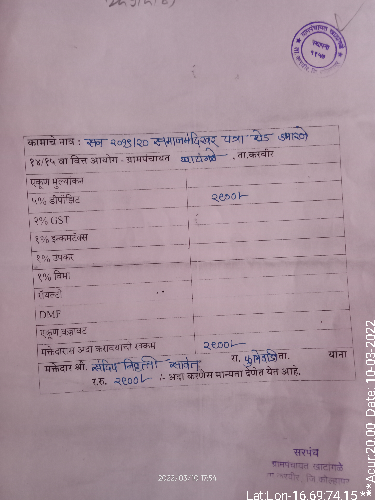 ग्रामपंचायत खाटांगळे
स्थापना
१९५७
कामाचे नाव : सन २०१९/२० समाजमंदिरवर पत्रा शेड उभारणे
१४/१५ वा वित्त आयोग - ग्रामपंचायत खाटांगळे ता.करवीर
एकूण मुल्यांकन
५% डीपॉझिट २९००/-
२% GST
१% इन्कमटॅक्स
१% उपकर
१% विमा
रॉयल्टी
DMF
एकूण वजावट
मक्तेदारास अदा करावयाची रक्कम २९००/-
मक्तेदार श्री. सावंत रा. ता. याना
र.रु. २९००/- अदा करणेस मान्यता देणेत येत आहे.
सरपंच
ग्रामपंचायत खाटांगळे
ता. करवीर, जि. कोल्हापूर
2022/03/10 17:54
Lat:Lon-16.69:74.15|***Acur:20.00, Date, 10-03-2022